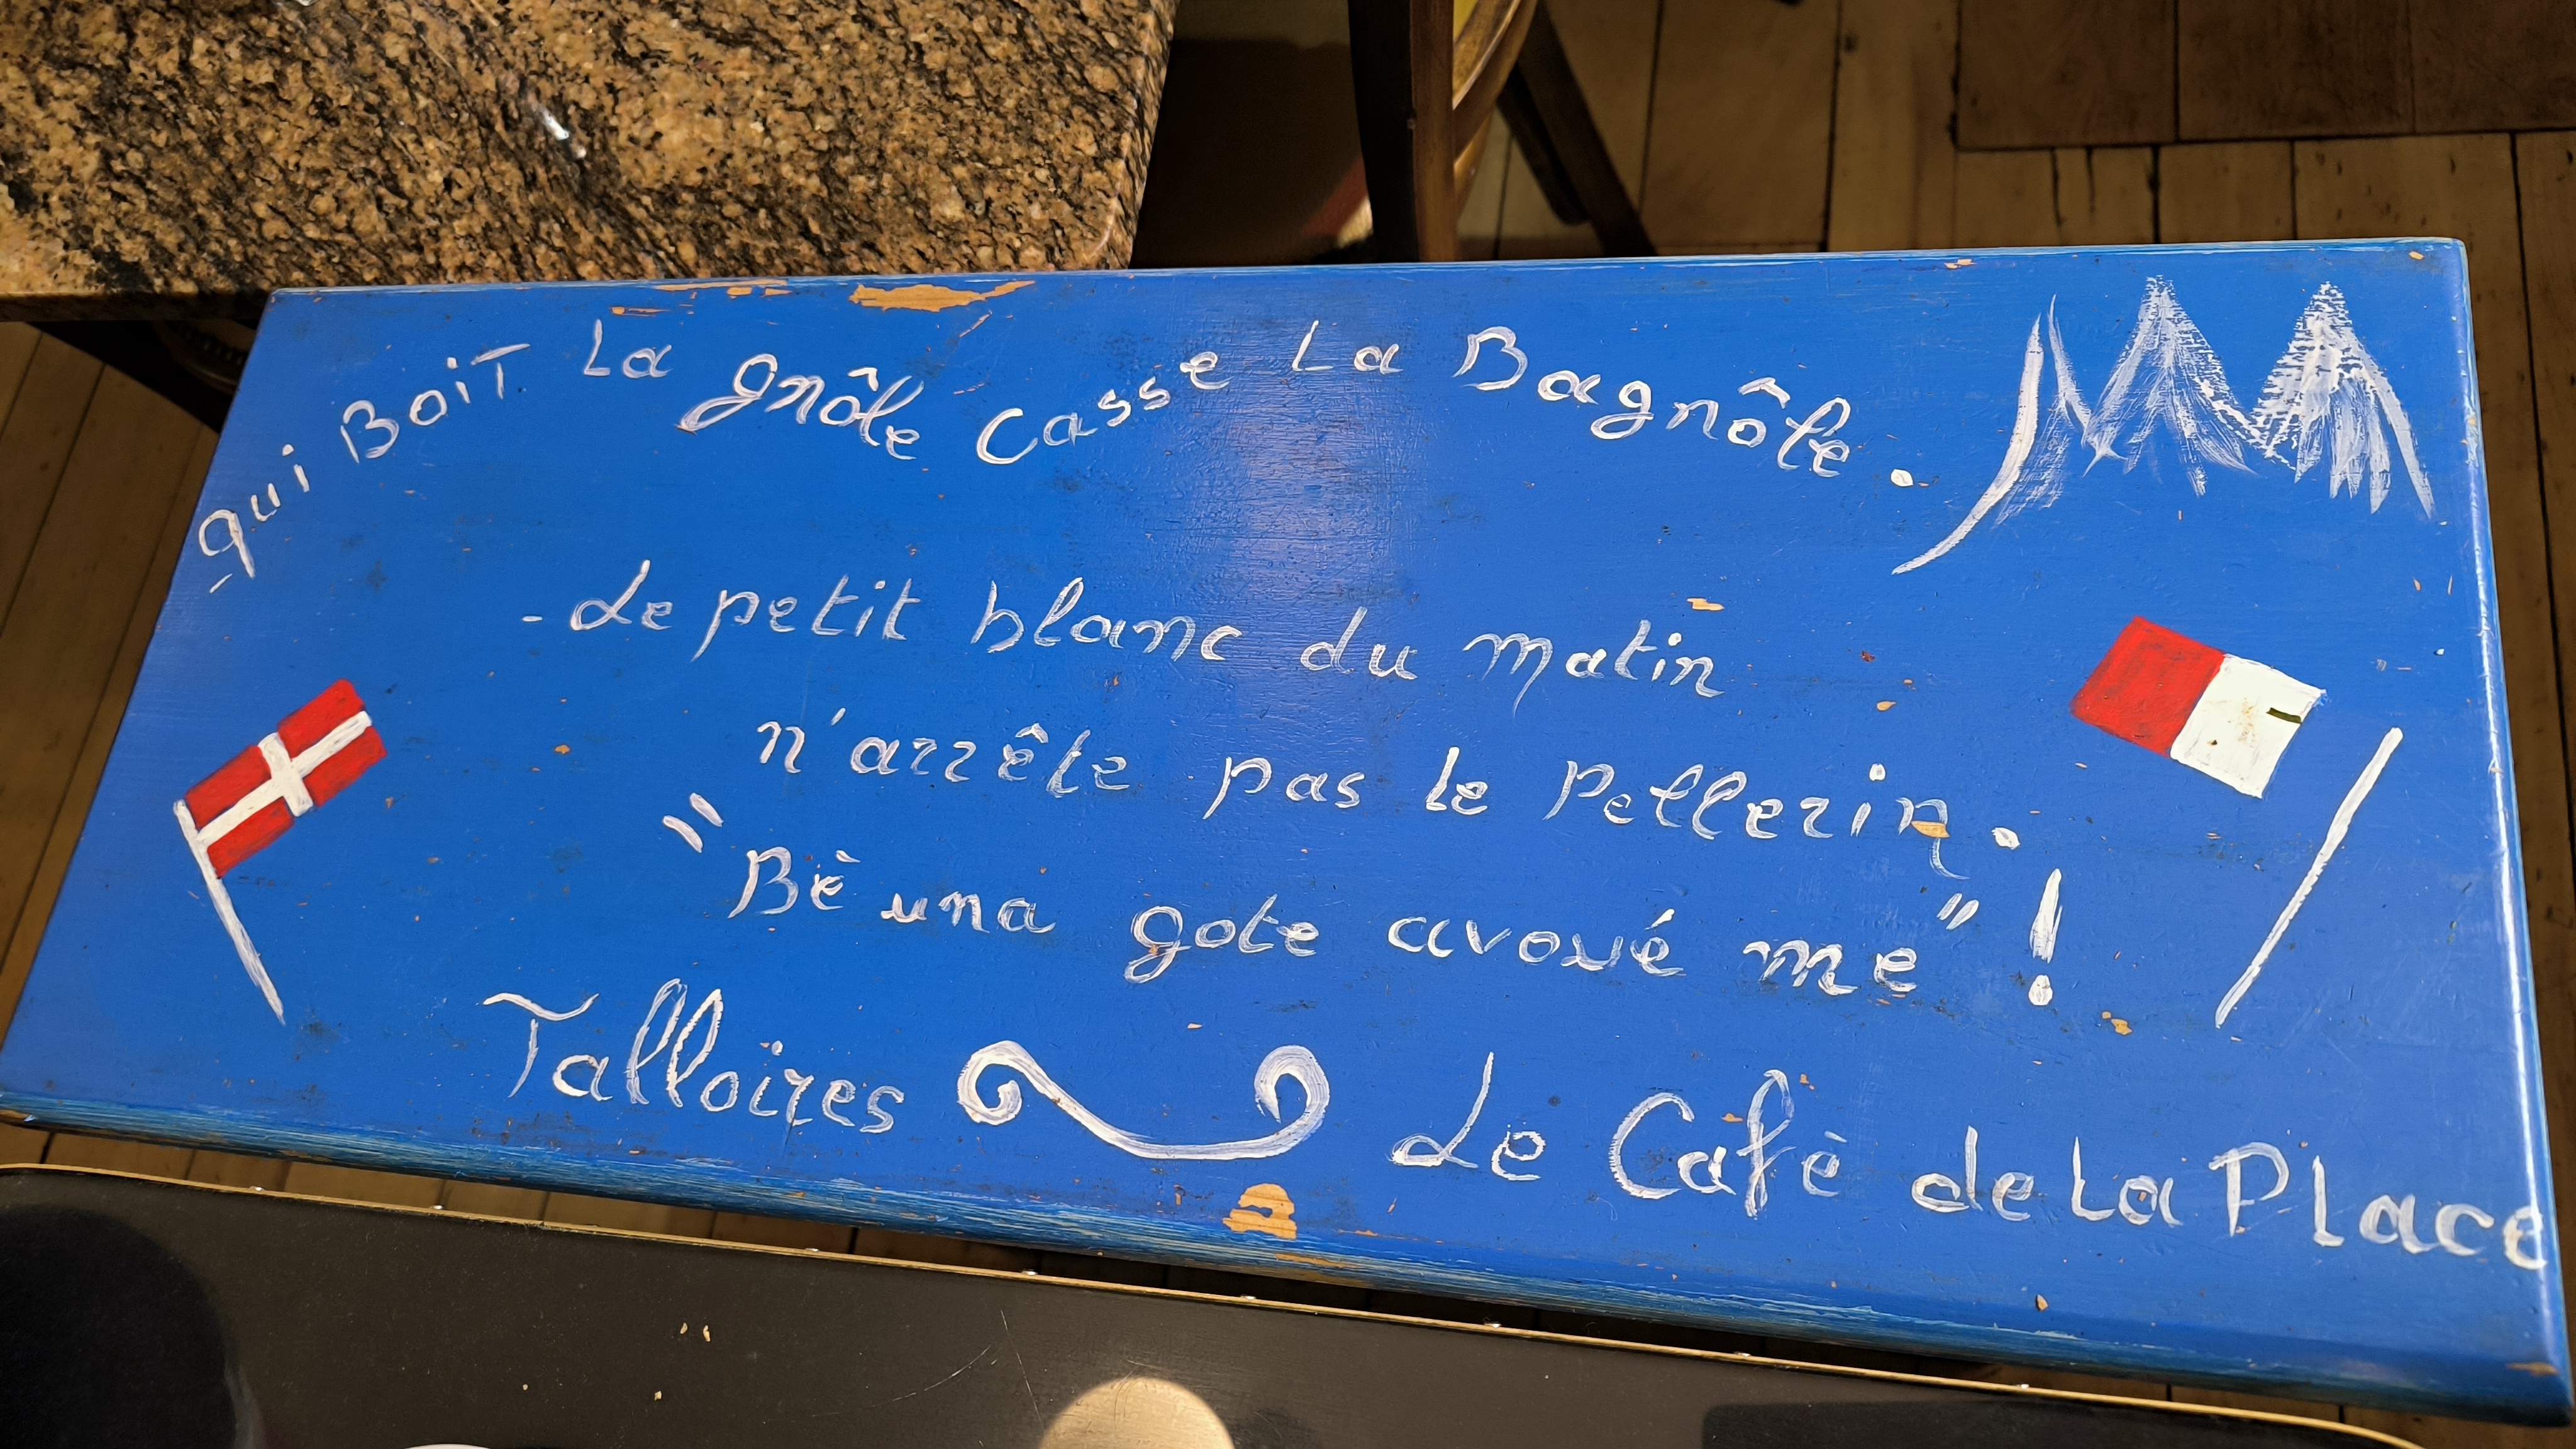 qui BoiT La gnôle casse La Bagnôle.
- Le petit blanc du matin
n'arrête pas le Pellerin.
"Bè una gote avoué me"!
Talloires Le Cafè de La Place